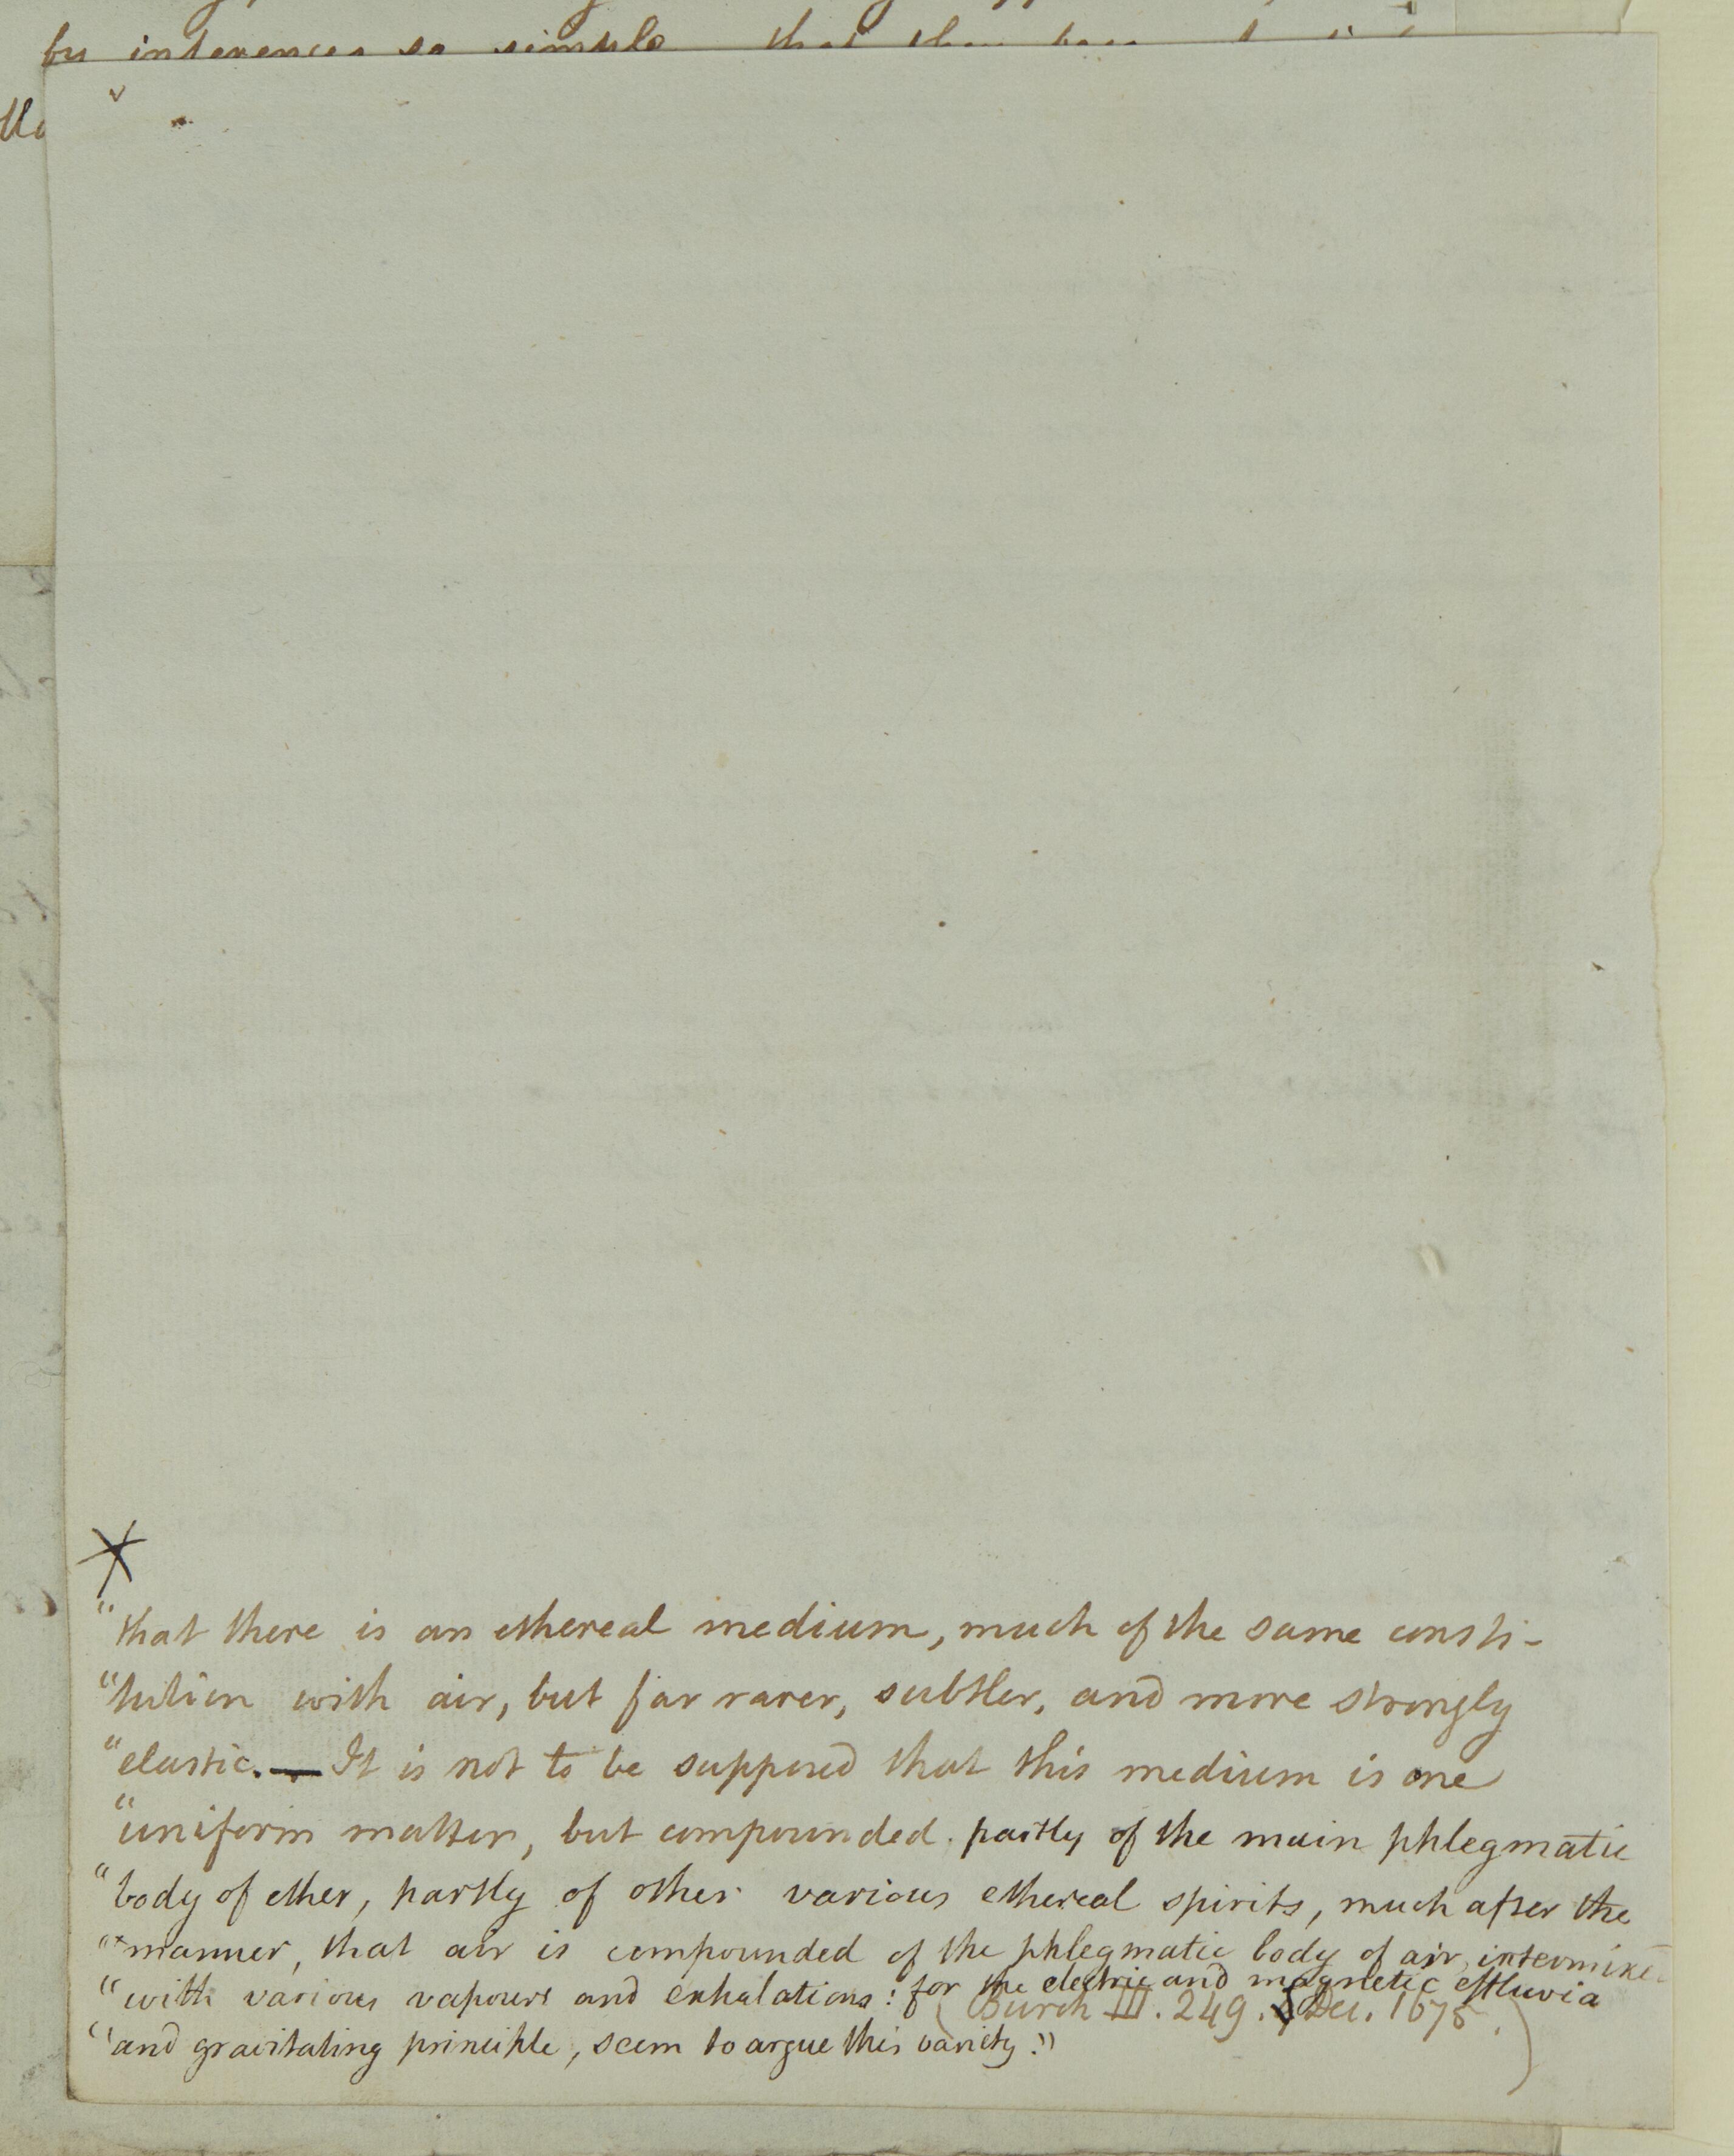 by inferences so simple that they
*
"that there is an ethereal medium, much of the same consti-
"tution with air, but far rarer, subtler, and more strongly
"elastic. — It is not to be supposed that this medium is one
"uniform matter, but compounded partly of the main phlegmatic
"body of ether, partly of other various ethereal spirits, much after the
"manner, that air is compounded of the phlegmatic body of air, intermixed
"with various vapours and exhalations: for the electric and magnetic effluvia
(Burch III. 249. Dec. 1675.)
"and gravitating principle, seem to argue this variety."